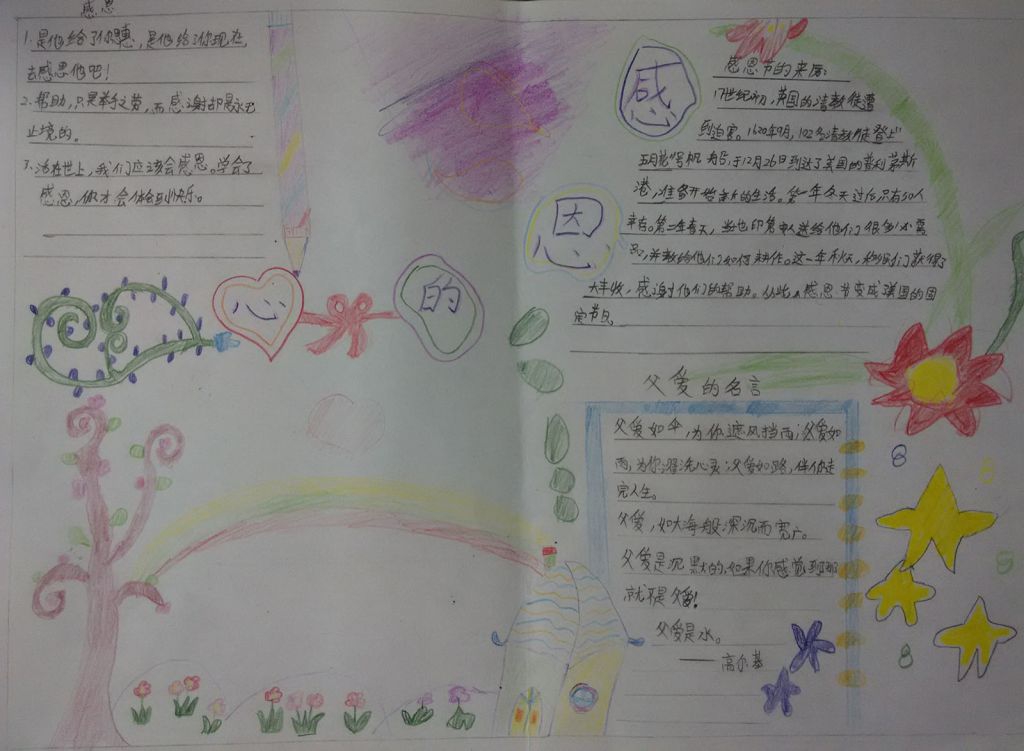 感恩
1. 是他给了你想，是他给了你现在，
去感恩他吧！
2. 帮助，只是举手之劳，而感谢却是永无
止境的。
3. 活在世上，我们应该会感恩。学会了
感恩，你才会体会到快乐。
心 的
感
恩
感恩节的来历：
17世纪初，英国的清教徒遭
到迫害。1620年9月，102名清教徒登上
五月花号帆船，于12月26日到达了美国的普利茅斯
港，准备开始新的生活。第一年冬天过后只有50人
幸存。第二年春天，当地印第安人送给他们很多必需
品，并教给他们如何耕作。这一年秋天，移民们获得了
大丰收，感谢他们的帮助。从此，感恩节变成美国的固
定节日
父爱的名言
父爱如伞，为你遮风挡雨；父爱如
雨，为你濯洗心灵；父爱如路，伴你走
完人生。
父爱，如大海般深沉而宽广。
父爱是沉默的，如果你感觉到那
就不是父爱！
父爱是水。
——高尔基